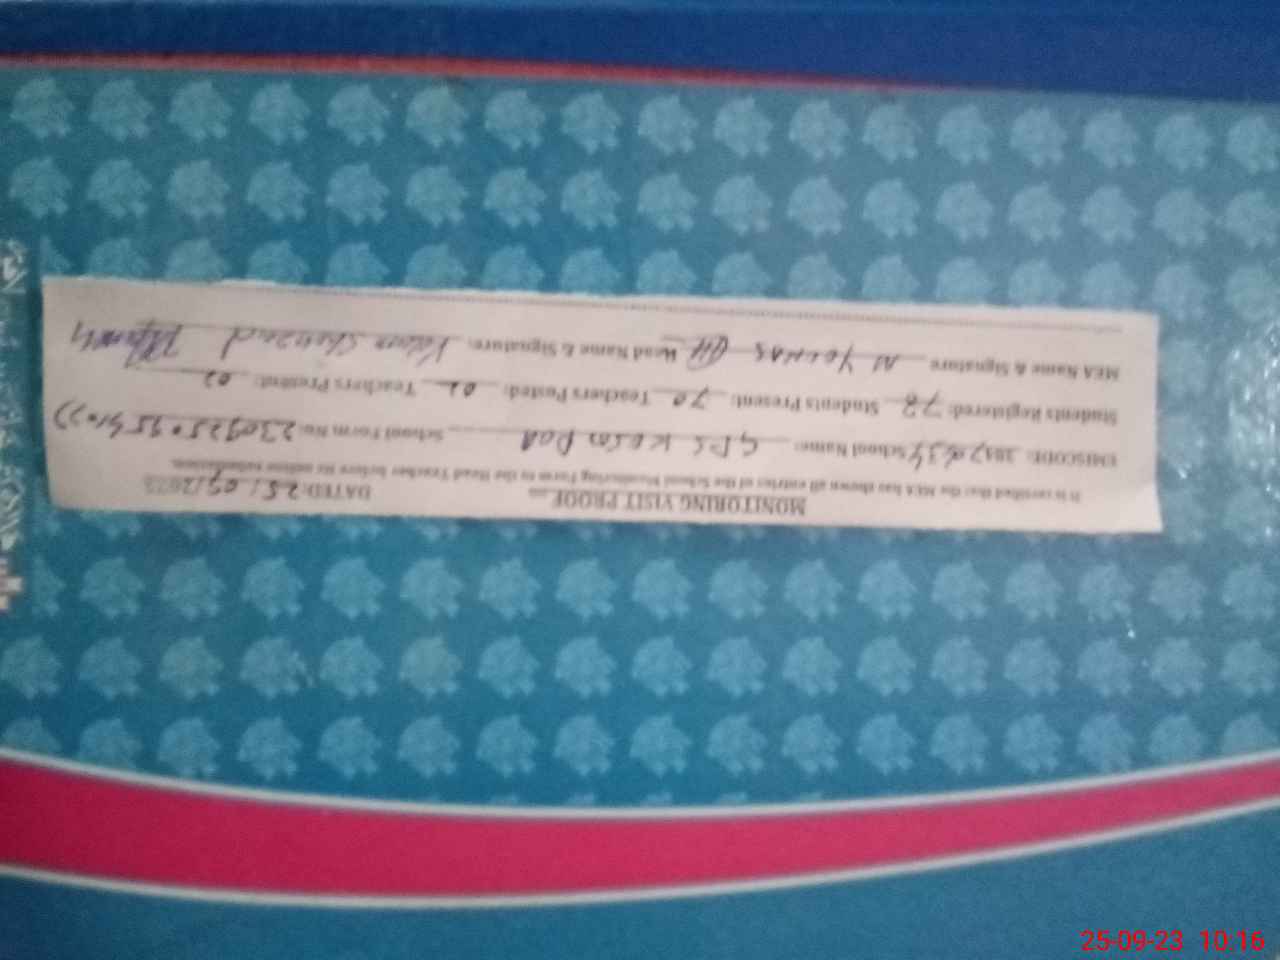 MONITORING VISIT PROOF
DATED: 25/09/2023
It is certified that the MEA has shown all entries of the School Monitoring Form to the Head Teacher before its online submission.
EMISCODE: School Name: GPS Kason Dad School Form No:
Students Registered: 78 Students Present: 70 Teachers Posted: 02 Teachers Present: 02
MEA Name & Signature M Younas Head Name & Signature: Shahzad
25-09-23 10:16